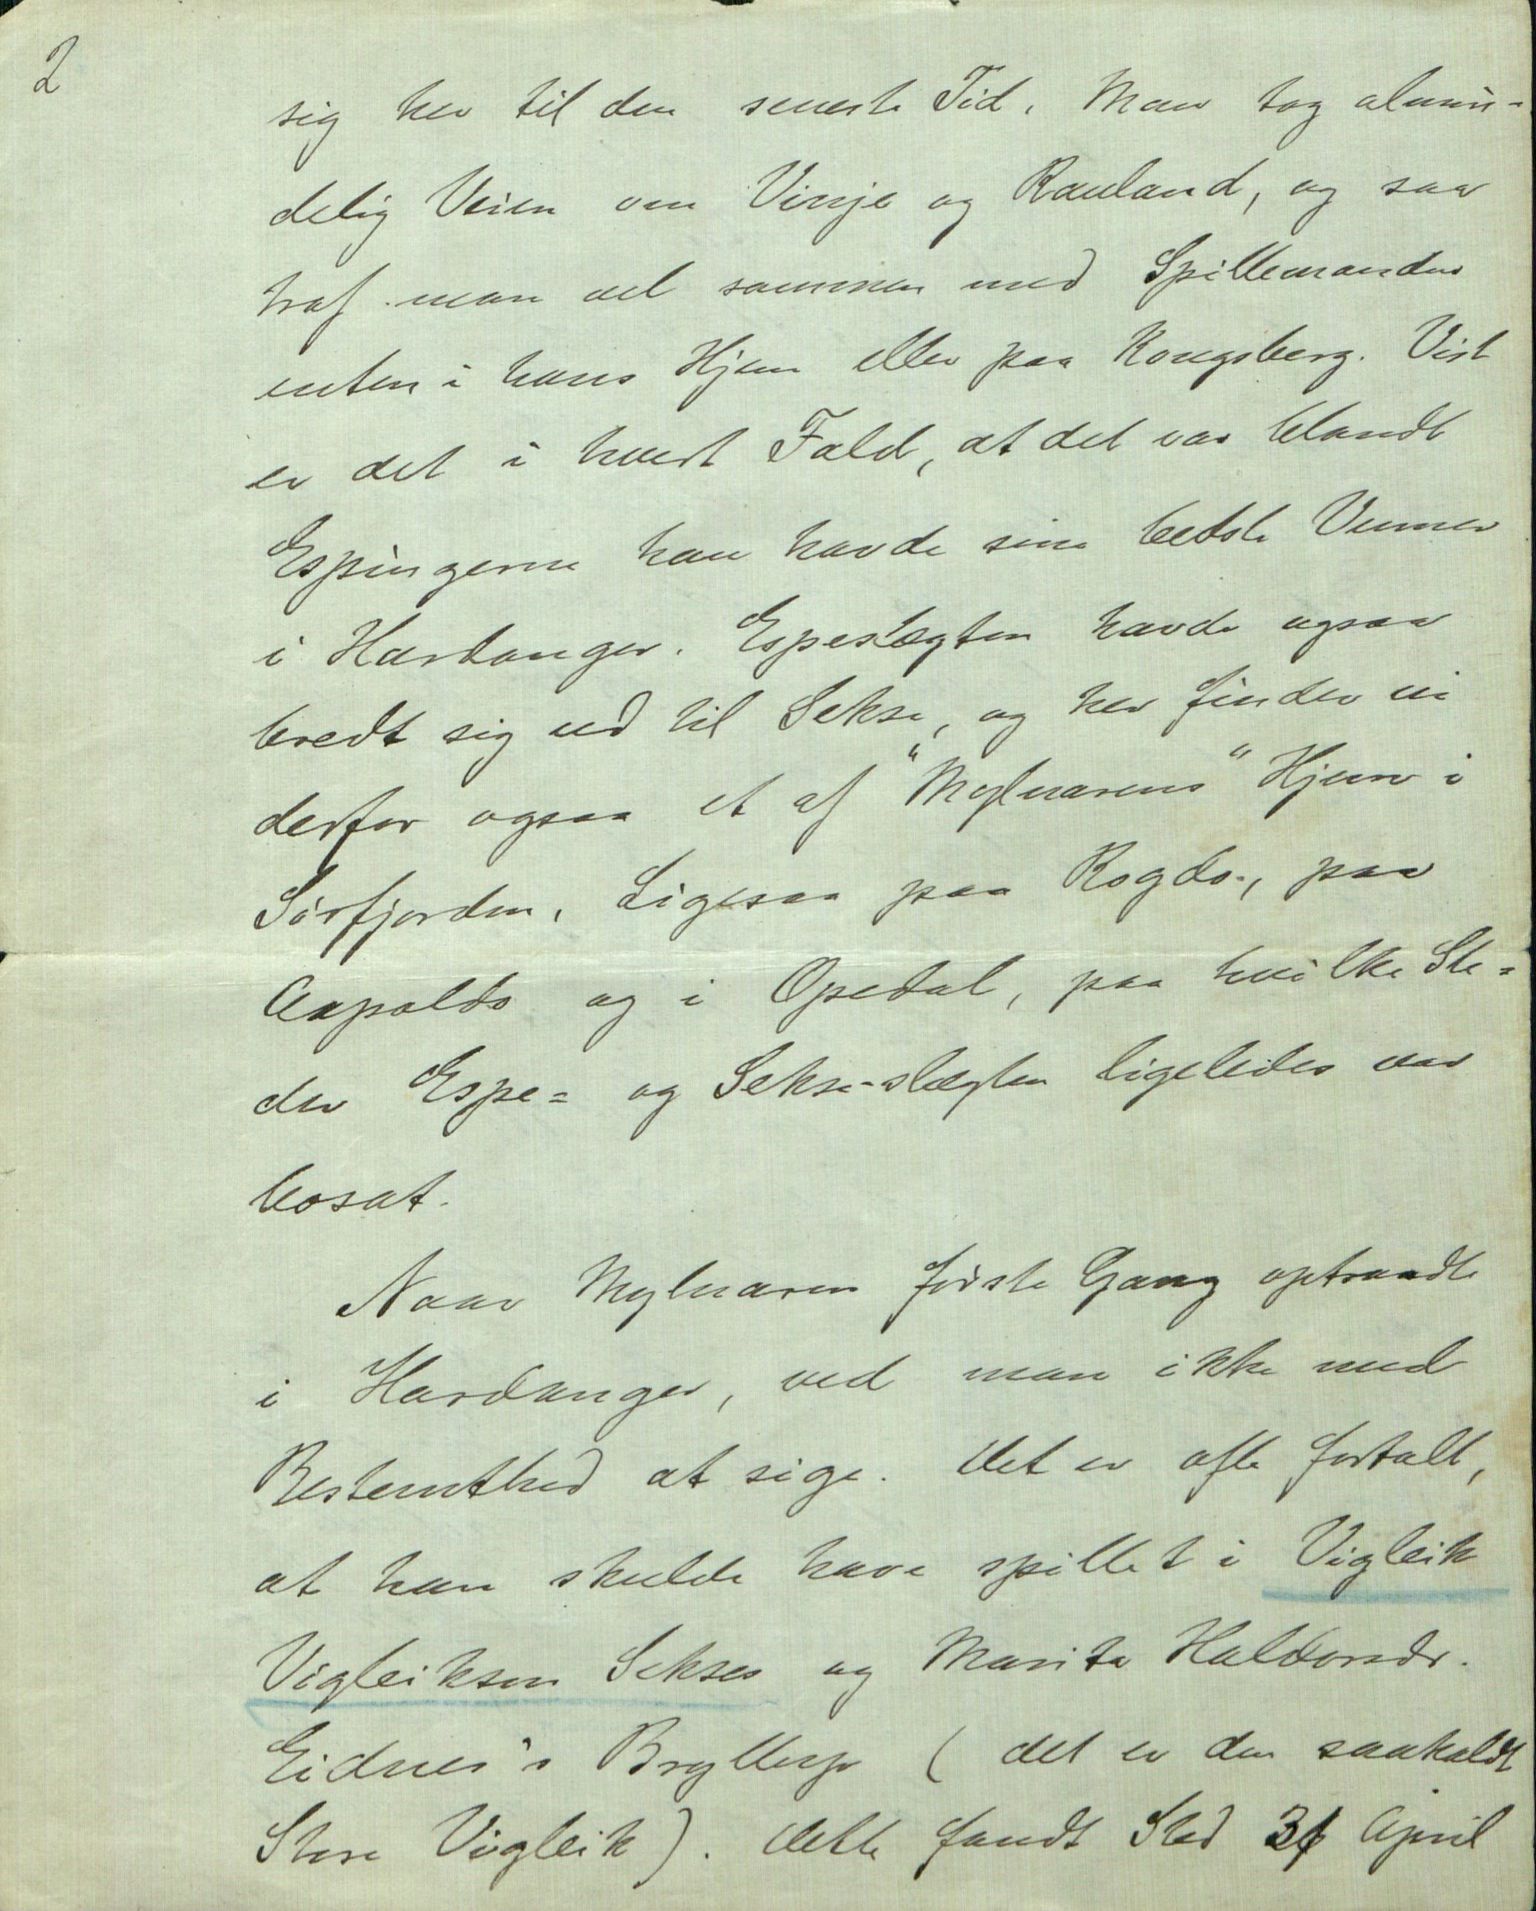 2
sig her til den seneste Tid. Man tog almin-
delig Veien om Vinje og Rauland, og saa
traf man vel sammen med Spillemanden
enten i hans Hjem eller paa Kongsberg. Vist
er det i hvert Fald, at det var blandt
Espingerne han havde sine bedste Venner
i Hardanger. Espeslægten havde ogsaa
bredt sig ud til Sekse, og her finder vi
derfor ogsaa et af "Mylnarens" Hjem i
Sørfjorden. Ligesaa paa Rogde, paa
Aapaldo og i Opedal, paa hvilke Ste=
der Espe= og Sekse-slægten ligeledes var
bosat.
Naar Mylnaren første Gang optraadte
i Hardanger, ved man ikke med
Bestemthed at sige. Det er ofte fortalt,
at han skulde have spillet i Vigleik
Vigleiksen Sekses og Marita Haldorsdr.
Eidnes's Bryllup (det er den saakaldte
Store Vigleik). Dette fandt Sted April